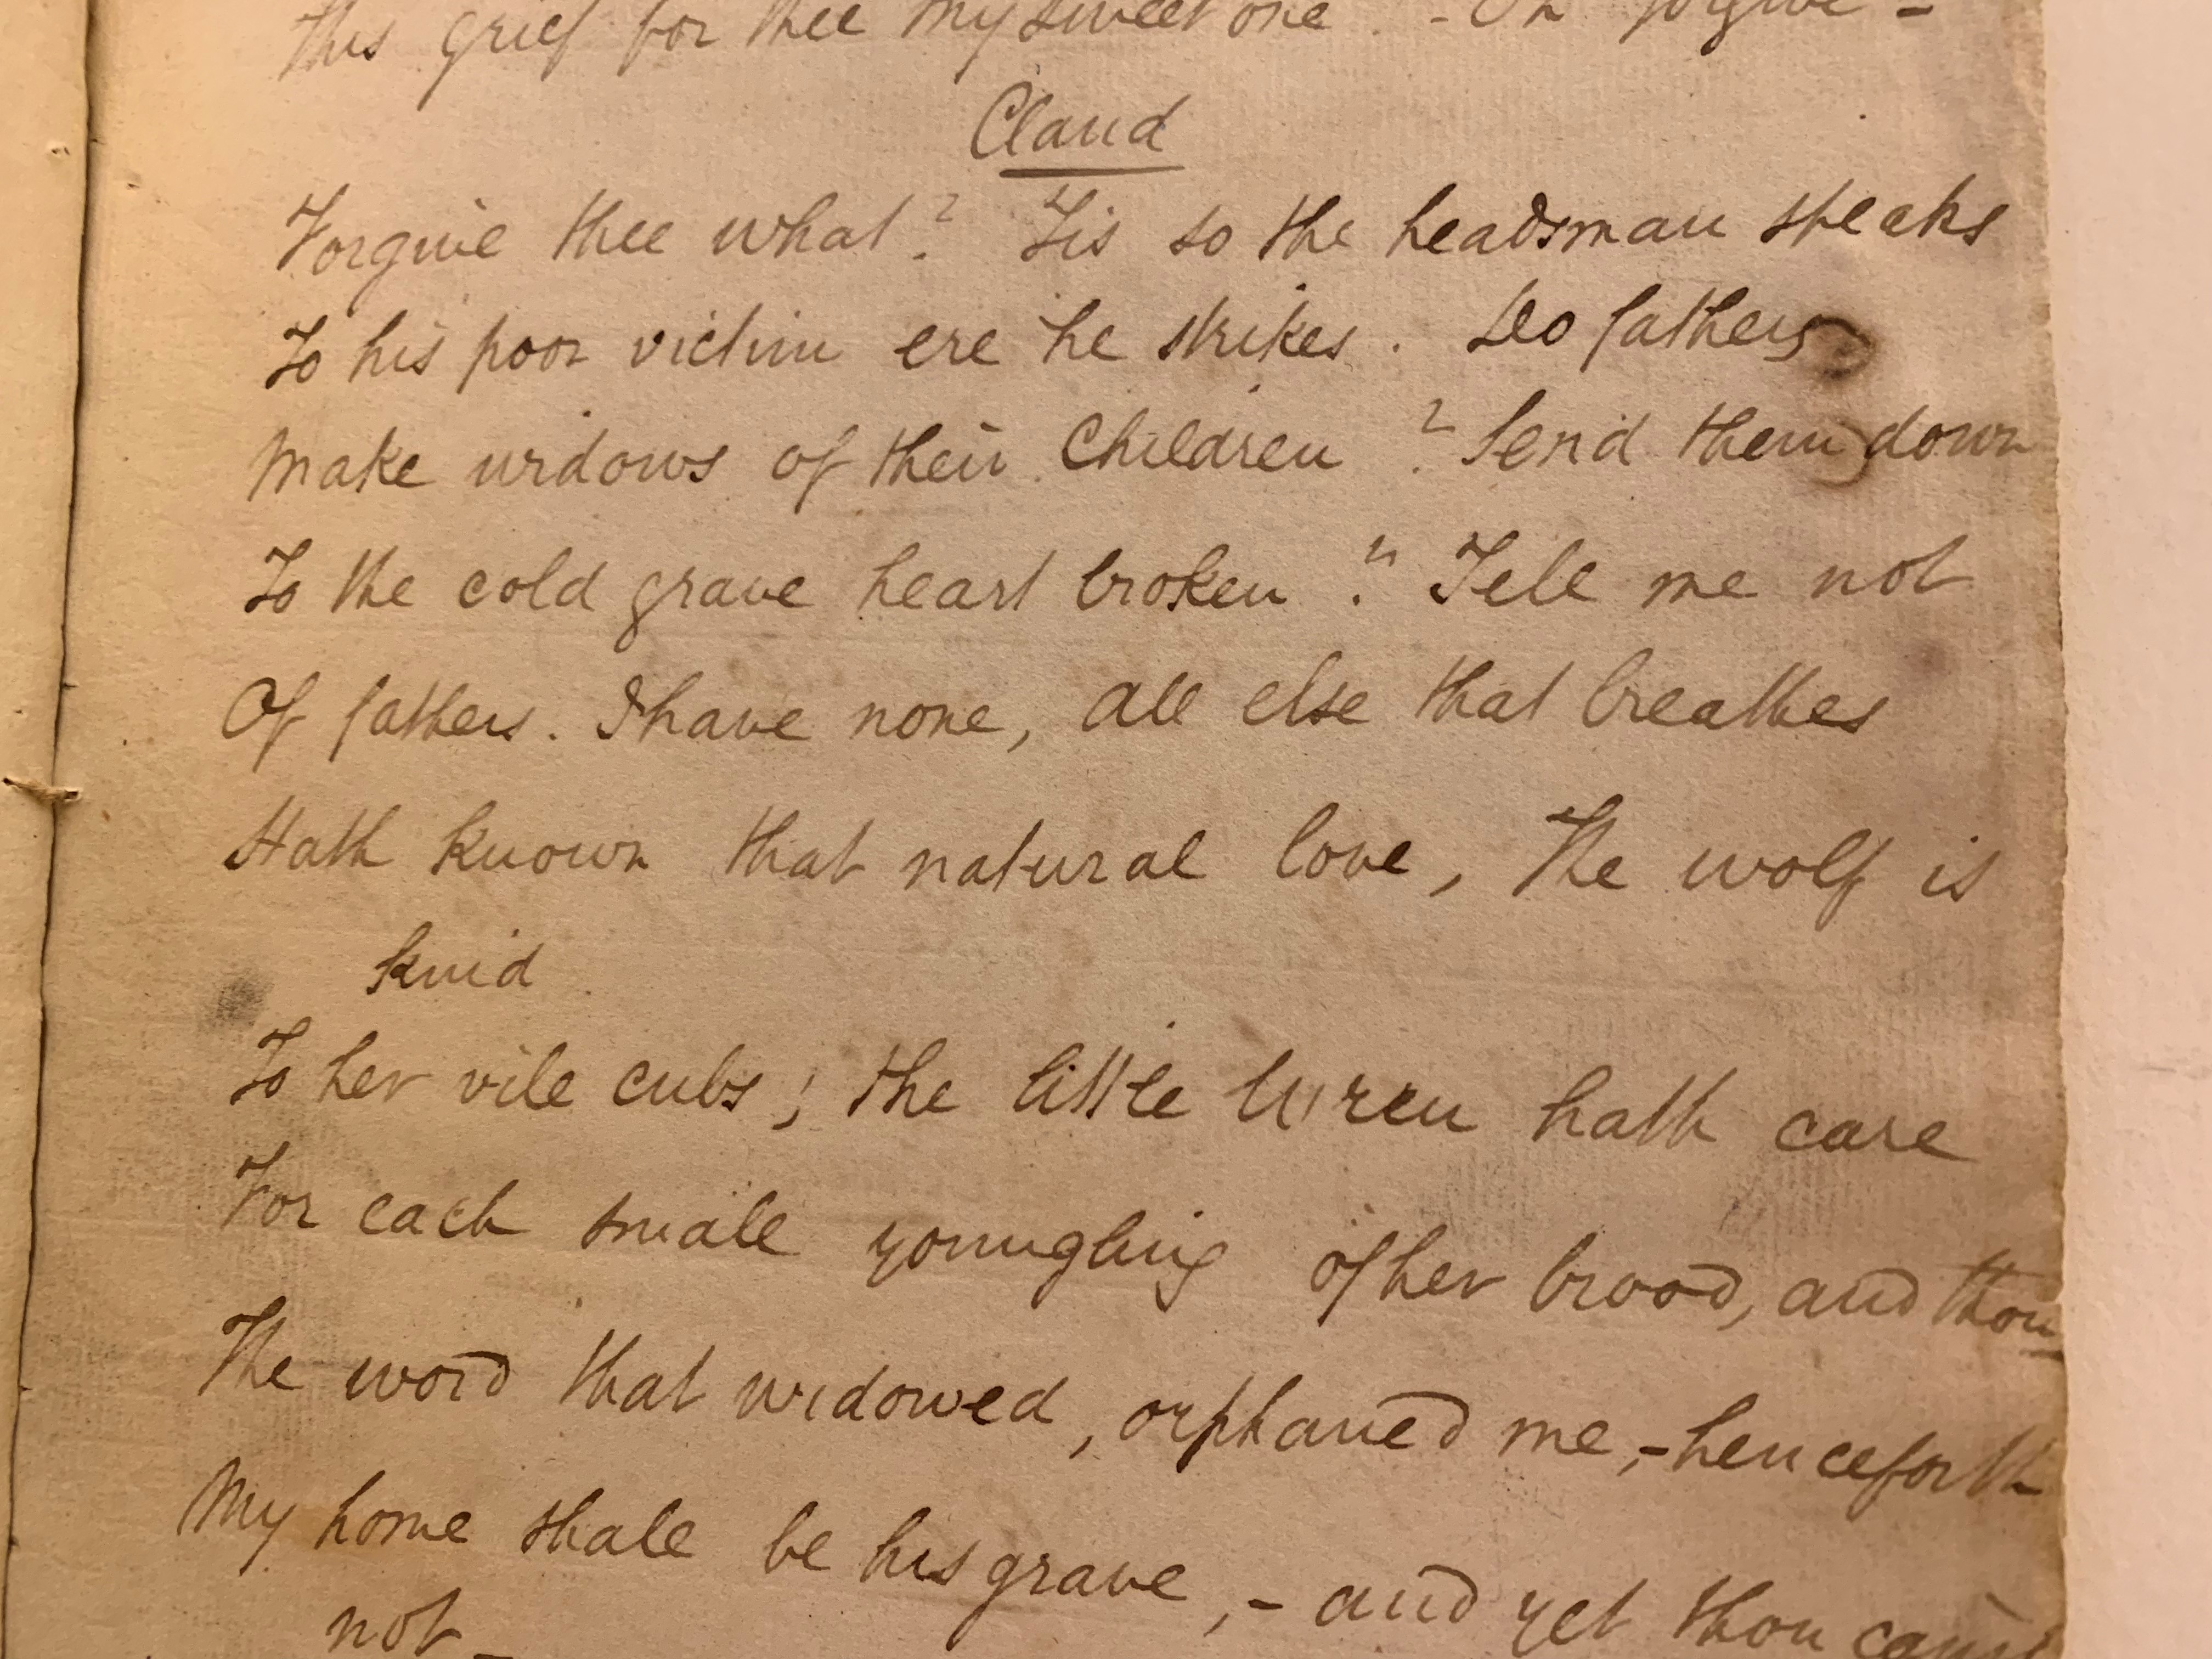 This grief for thee my sweet one. - Oh forgive -
Claud
Forgive thee what? Tis so the headsman speaks
To his poor victim ere he strikes. Do fathers
Make widows of their Children? Send them down
To the cold grave heart broken? Tell me not
Of fathers. I have none, all else that breathes
Hath known that natural love, The wolf is
kind
To her vile cubs; the little Wren hath care
For each small youngling of her brood, and thou
The word that widowed, orphaned me, - henceforth
My home shall be his grave, - and yet thou canst
not -